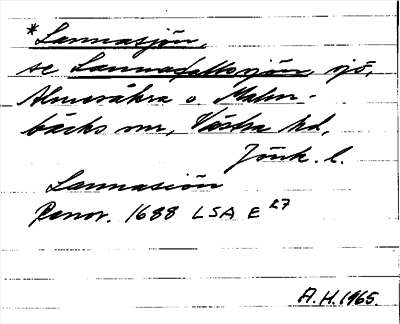 *Lannasjön,
se Lannafallssjön, sjö,
Almesåkra o. Malm-
bäcks snr, Västra hd,
Jönk. l.
Lannasiön
Renov. 1688 LSA E 27
A.H. 1965.